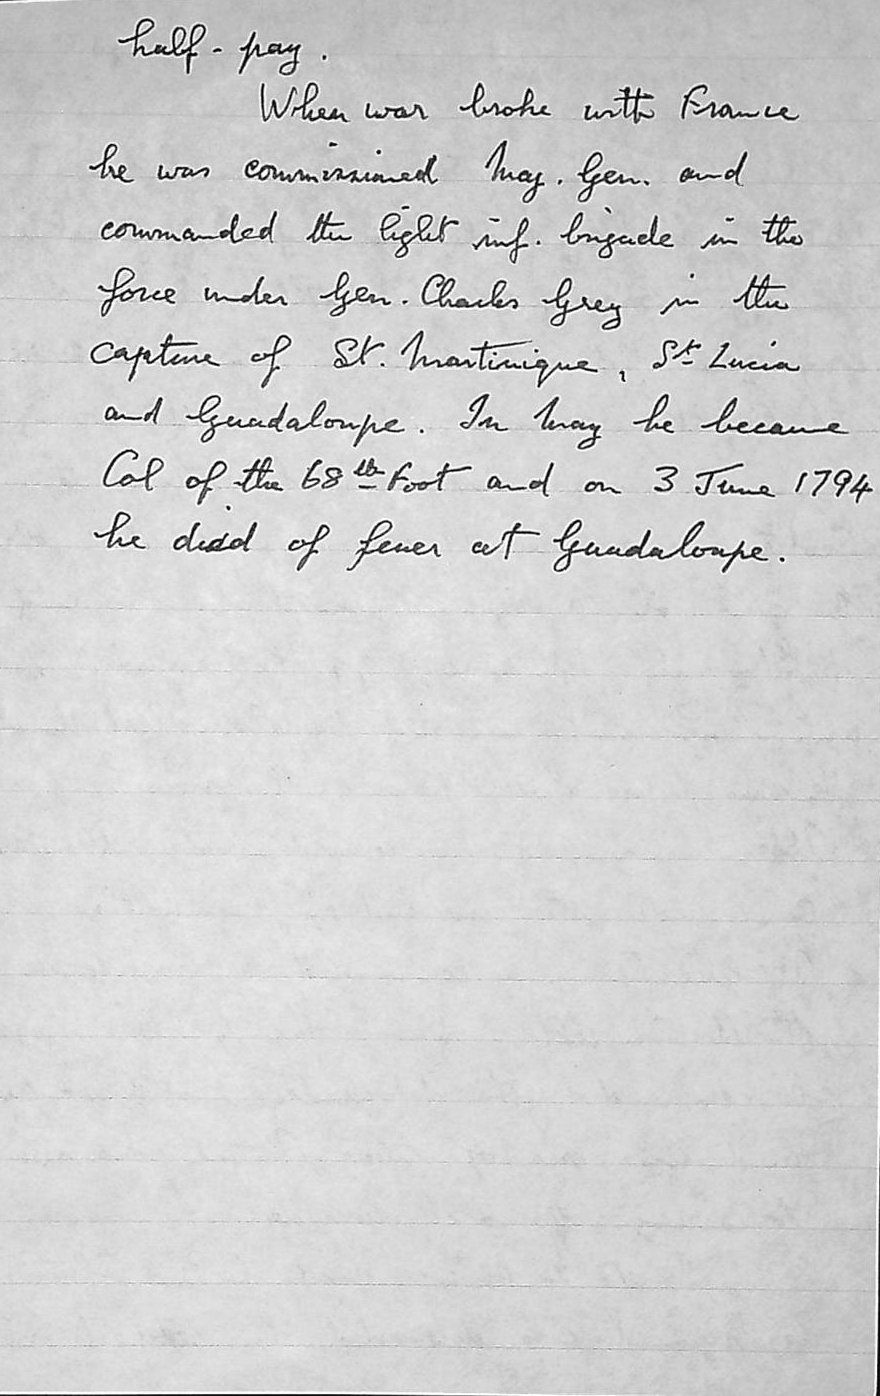 half-pay.
When war broke with France
he was commissioned Maj. Gen. and
commanded the light inf. brigade in the
force under Gen. Charles Grey in the
capture of St. Martinique, St Lucia
and Guadaloupe. In May he became
Col of the 68th Foot and on 3 June 1794
he died of fever at Guadaloupe.